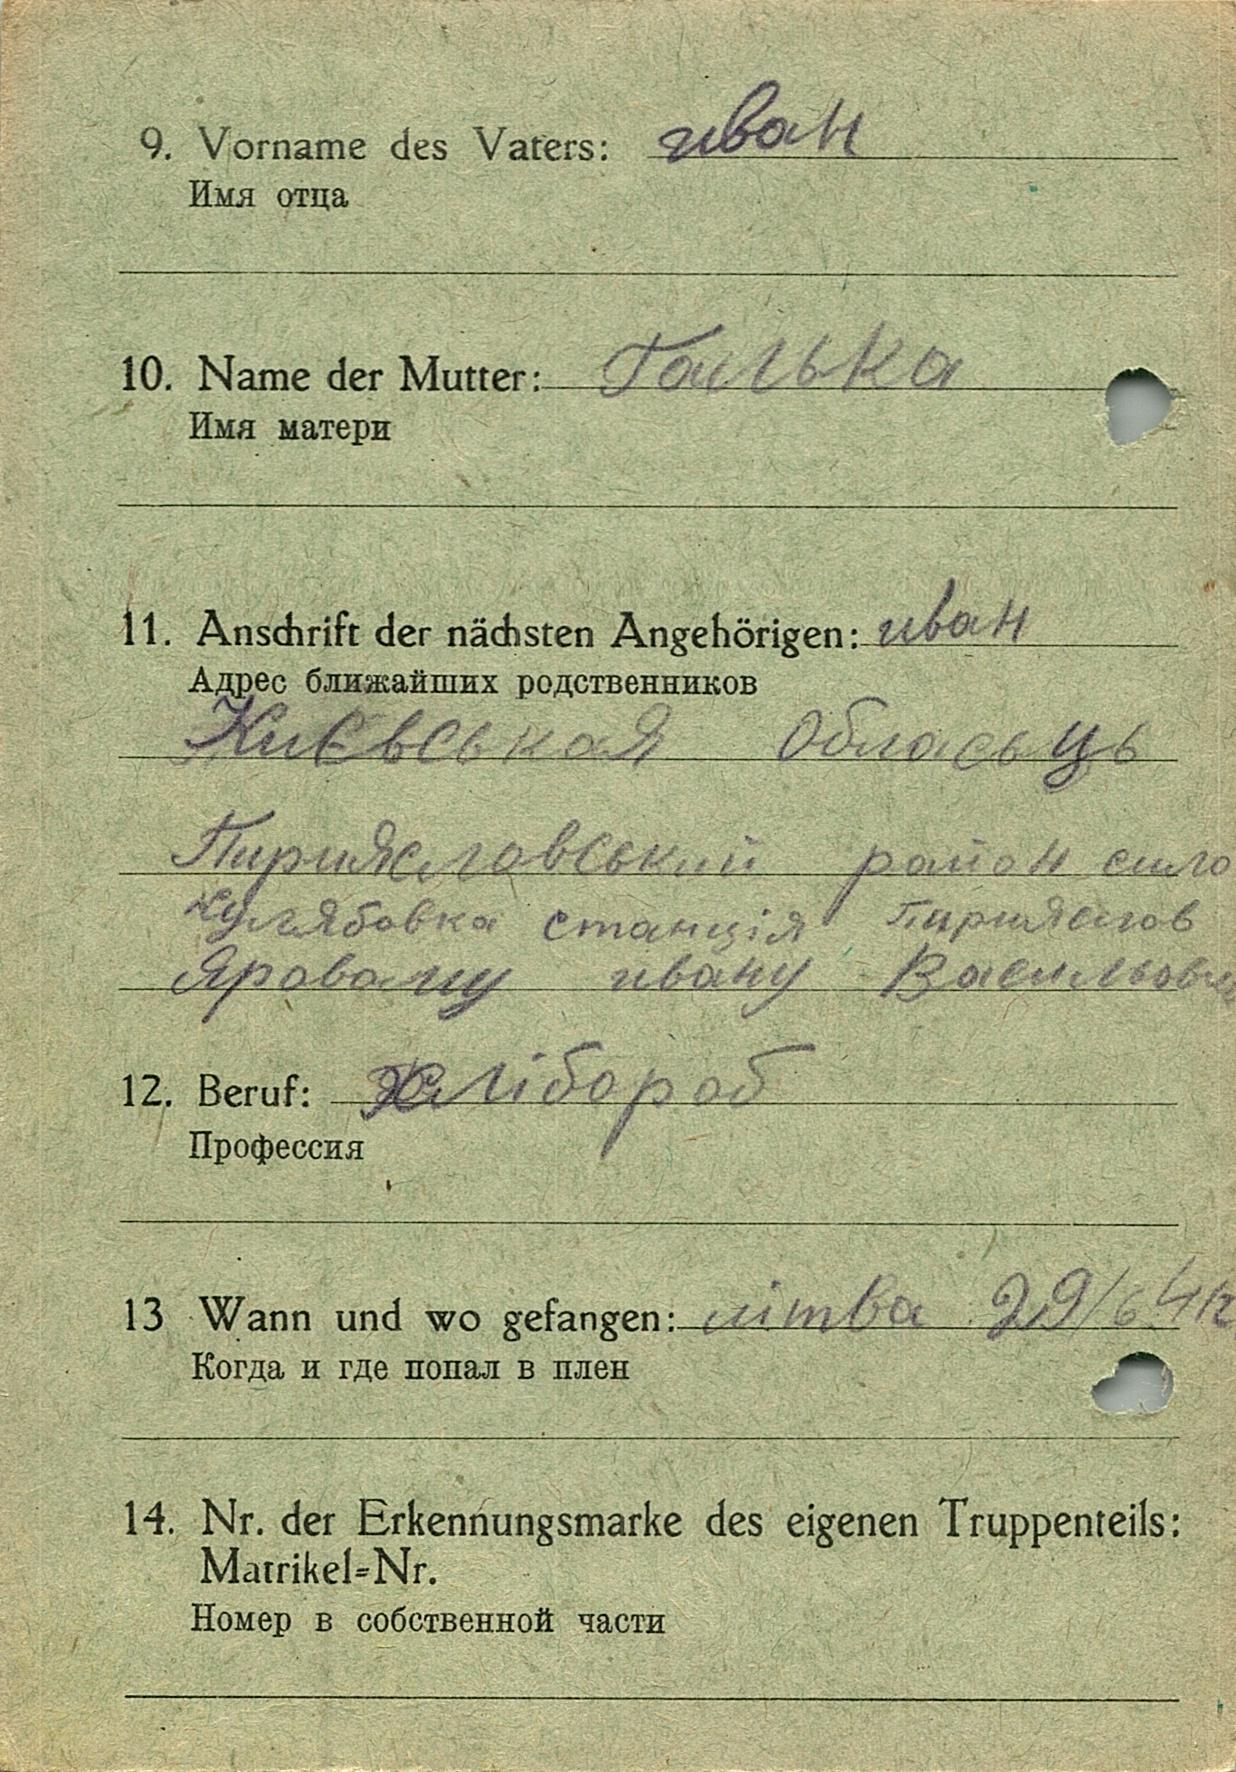 9. Vorname des Vaters: иван
Имя отца
10. Name der Mutter: Галька
Имя матери
11. Anschrift der nächsten Angehörigen: иван
Адрес ближайших родственников
Києвськая Обласьць
Пириясловський район сило
Кулябовка станція Пирияслов
Яровому ивану Васильови
12. Beruf: Хлібороб
Профессия
13 Wann und wo gefangen: літва 29/6 41г
Когда и где попал в плен
14. Nr. der Erkennungsmarke des eigenen Truppenteils:
Matrikel=Nr.
Номер в собственной части